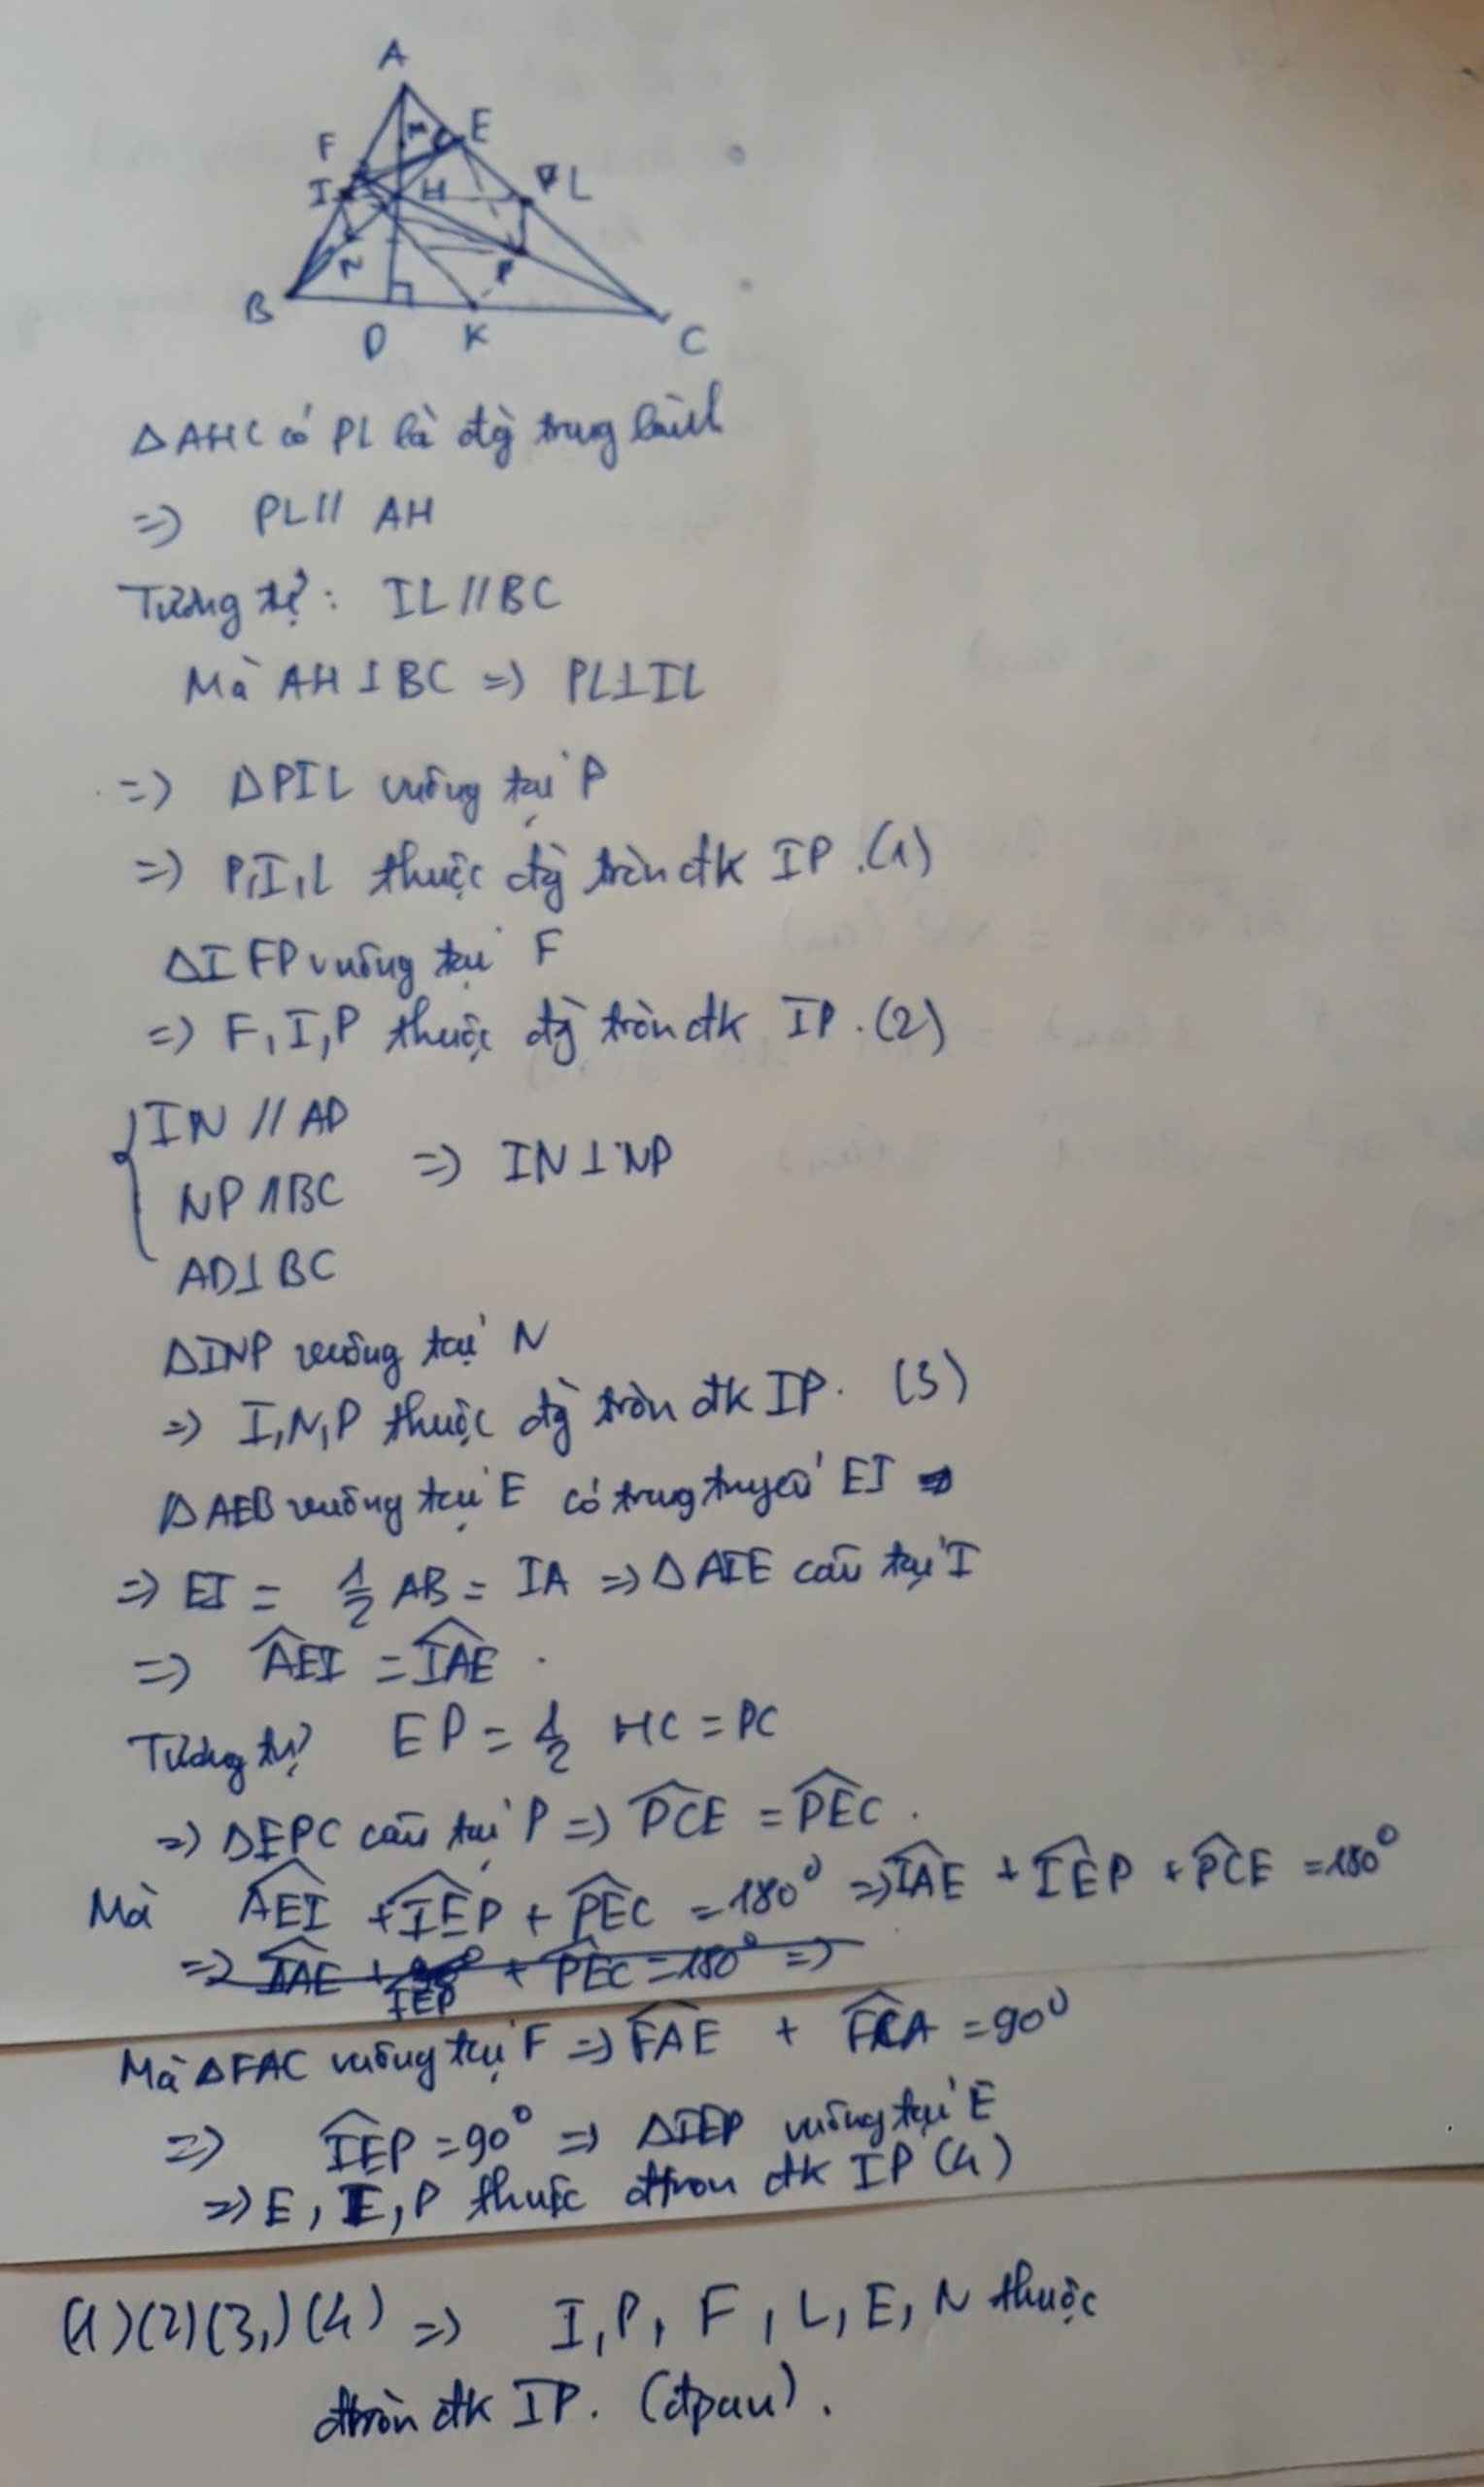 A
F
M
E
I
H
L
N
P
B
D
K
C
ΔAHC có PL là đg trung bình
=> PL // AH
Tương tự: IL // BC
Mà AH ⊥ BC => PL ⊥ IL
=> ΔPIL vuông tại P
=> P, I, L thuộc đg tròn đk IP. (1)
ΔIFP vuông tại F
=> F, I, P thuộc đg tròn đk IP. (2)
IN // AD
NP // BC => IN ⊥ NP
AD ⊥ BC
ΔINP vuông tại N
=> I, N, P thuộc đg tròn đk IP. (3)
ΔAEB vuông tại E có trung tuyến EI
=> EI = 1/2 AB = IA => ΔAIE cân tại I
=> \widehat{AEI} = \widehat{IAE}.
Tương tự EP = 1/2 HC = PC
=> ΔEPC cân tại P => \widehat{PCE} = \widehat{PEC}.
Mà \widehat{AEI} + \widehat{IEP} + \widehat{PEC} = 180° => \widehat{IAE} + \widehat{IEP} + \widehat{PCE} = 180°
=> \widehat{IAE} + \widehat{IEP} + \widehat{PEC} = 180° =>
Mà ΔFAC vuông tại F => \widehat{FAE} + \widehat{FCA} = 90°
=> \widehat{IEP} = 90° => ΔIEP vuông tại E
=> E, I, P thuộc đtròn đk IP (4)
(1)(2)(3)(4) => I, P, F, L, E, N thuộc
đtròn đk IP. (đpcm).